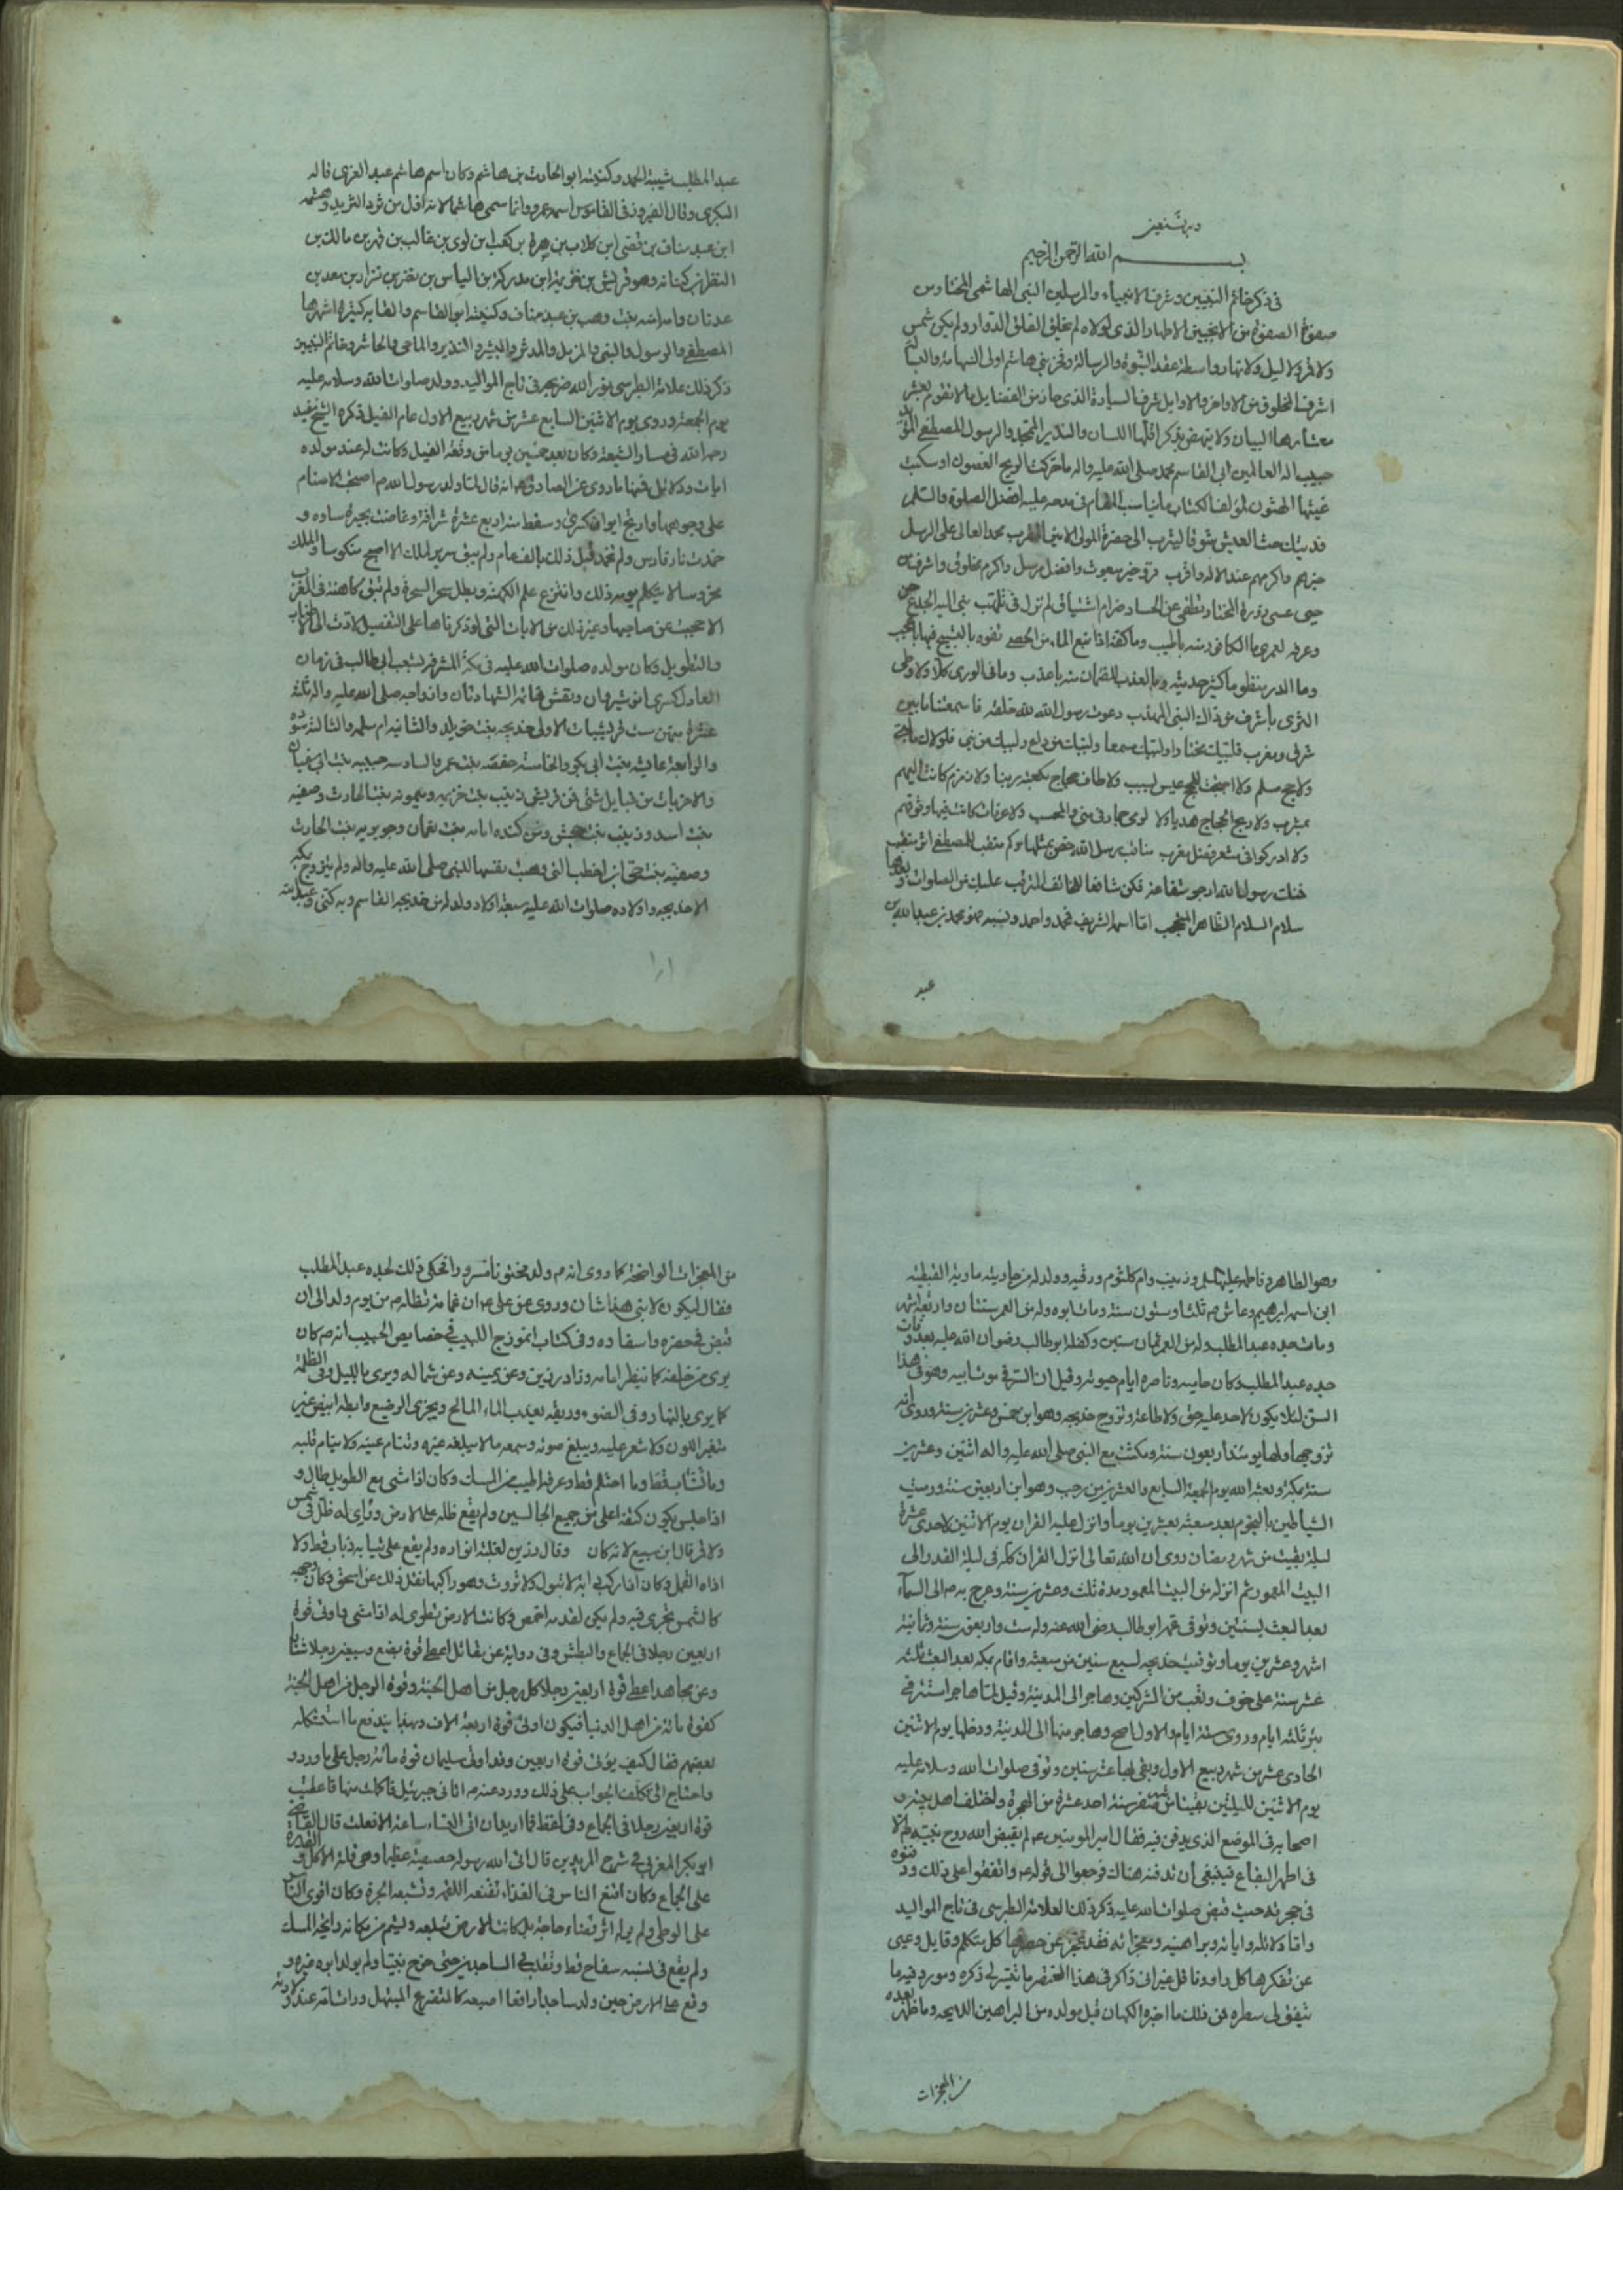 وبه نستعين
بسم الله الرحمن الرحيم
في ذكر خاتم النبيين وشرف الانبياء والمرسلين النبي الهاشمي المختار من
صفوة الصفوة من الانجبين الاطهار الذي لولاه لم يخلق الفلق الدوار ولم يكن شمس
ولا قمر ولا ليل ولا نهار واسطة عقد النبوة والرسالة وفخر بني هاشم اولى الشهامة والبسالة
اشرف المخلوق من الاواخر والاوايل شرف السيادة الذي حاز من الفضايل ما لا تقوم بعشر
معشارها البيان ولا ينهض بذكر اقلها اللسان والنذير الممجد والرسول المصطفى المؤيد
حبيب اله العالمين ابي القاسم محمد صلى الله عليه واله ما حركت الريح الغصون او سكبت
غيثها الهتون لمؤلف الكتاب ما يناسب المقام في مدحه عليه افضل الصلوة والسلم
فديتك حث العيش شوقا ليثرب الى حضرة المولى محمد العالى على الرسل
خيرهم واكرمهم عند الاله واقرب خير مبعوث وافضل مرسل واكرم مخلوق واشرف من
حبي عسى زورة المختار تطفى عن الحشا ضرام اشتياق لم تزل في تلهب نبي اليه الجذع حن
وعرفه لعمري ما الكافى منه باطيب وما كفه اذا نبع الماء من الحصى تفوه بالتسبيح فيها باعجب
وما الدر منظوما كثير حديثه وما العذب للظمان منه باعذب وما في الورى كلا ولا وطى
الثرى باشرف من ذاك النبي المهذب دعوت رسول الله لله خلقه فاسمعتنا ما بين
شرق ومغرب فلبيك مختارا ولبيك سمعا ولبيك من داع ولبيك من نبي فلولاك ما
ولا حج مسلم ولا اصبحت عيس لسبب ولا طاف حجاج بكعبة ربنا ولا زمزم كانت اليهم
بمشرب ولا ربح الحجاج هديا ولا لوى جمار في منى والمحصب ولا عرفات كانت فيها وقوفهم
ولا ادركوا في مشعر فضل مغرب مناقب رسل الله حصن بمثلها وكم منقب للمصطفى اثر منقب
جنابك رسول الله ارجو شفاعة فكن شافعا للخائف المترقب عليك من الصلوات وبعدها
سلام السلام الطاهر اما اسمه الشريف فمحمد واحمد ونسبه هو محمد بن عبد الله بن
عبد
عبد المطلب شيبة الحمد وكنيته ابو الحارث بن هاشم وكان اسم هاشم عبد العزى قاله
البكرى وقال الفيروز في القاموس اسمه عمرو وانما سمى هاشما لانه اول من ثرد الثريد وهشمه
ابن عبد مناف بن قصى ابن كلاب بن مرة بن كعب ابن لوى بن غالب بن فهر بن مالك بن
النظر بن كنانه وهو قريش بن خزيمة ابن مدركة بن الياس بن مضر بن نزار بن معد بن
عدنان وامه امنه بنت وهب بن عبد مناف وكنيته ابو القاسم والقابه كثيرة اشهرها
المصطفى والرسول والنبي والمزمل والمدثر والبشير والنذير والماحى والحاشر وخاتم النبيين
ذكر ذلك علامة الطبرسى نور الله ضريحه في تاج المواليد وولد صلوات الله وسلامه عليه
يوم الجمعة وروى يوم الاثنين السابع عشر من شهر ربيع الاول عام الفيل ذكره الشيخ مفيد
رحمه الله في مسار الشيعة وكان بعد خمسين يوما من وقعة الفيل وكانت له عند مولده
ايات ودلائل فمنها ما روى عن الصادق انه قال لما ولد رسول الله ص اصبحت الاصنام
على وجوهها وارتج ايوان كسرى وسقط منه اربع عشرة شرافة وغاضت بحيرة ساوه و
خمدت نار فارس ولم تخمد قبل ذلك بالف عام ولم يبق سرير لملك الا اصبح منكوسا والملك
مخروسا لا يتكلم يومه ذلك وانتزع علم الكهنة وبطل سحر السحرة ولم تبق كاهنة في العرب
الا حجبت عن صاحبها وغير ذلك من الايات التي لو ذكرناها على التفصيل لادت الى الاطناب
والتطويل وكان مولده صلوات الله عليه في مكة المشرفة بشعب ابي طالب في زمان
العادل كسرى انوشيروان ونقش خاتمه الشهادتان وازواجه صلى الله عليه واله ثلثة
عشرة منهن ست قرشيات الاولى خديجه بنت خويلد والثانيه ام سلمه والثالثة سوده
والرابعة عايشه بنت ابي بكر والخامسة حفصة بنت عمر والسادسه حبيبه بنت ابي سفيان
والاخريات من قبايل شتى غير قريش زينب بنت خزيمه وميمونه بنت الحارث وصفيه
بنت اسد وزينب بنت جحش ومن كنده امامه بنت نعمان وجويريه بنت الحارث
وصفيه بنت حي ابن اخطب التي وهبت نفسها للنبي صلى الله عليه واله ولم يتزوج بكة
الا خديجه واولاده صلوات الله عليه سبعة اولاد ولد له من خديجه القاسم وبه كنى وعبد الله
وهو الطاهر وفاطمه عليها السلم وزينب وام كلثوم ورقيه وولد له من جاريته مارية القبطيه
ابن اسمه ابرهيم وعاش ص ثلثا وستون سنة ومات ابوه وله من العمر سنتان واربعة اشهر
ومات جده عبد المطلب وله من العمر ثمان سنين وكفله ابو طالب رضوان الله عليه بعد وفات
جده عبد المطلب وكان حاميه وناصره ايام حيوته وقيل ان السر في موت ابيه وهو في هذا
السن لئلا يكون لاحد عليه حق ولا طاعة وتزوج خديجه وهو ابن خمس وعشرين سنة وروى انه
تزوجها ولها يومئذ اربعون سنة ومكثت مع النبي صلى الله عليه واله اثنين وعشرين
سنة بمكة وبعثه الله يوم الجمعة السابع والعشرين من رجب وهو ابن اربعين سنة ورميت
الشياطين بالنجوم بعد مبعثه بعشرين يوما وانزل عليه القران يوم الاثنين لاحدى عشرة
ليلة بقيت من شهر رمضان روى ان الله تعالى انزل القران كله في ليلة القدر الى
البيت المعمور ثم انزله من البيت المعمور مدة ثلث وعشرين سنة وعرج به ص الى السمآء
بعد البعث بسنتين وتوفى عمه ابو طالب رضي الله عنه وله ست واربعين سنة وثمانية
اشهر وعشرين يوما وتوفيت خديجه لسبع سنين من مبعثه واقام بمكه بعد البعث ثلثه
عشر سنة على خوف وتعب من المشركين وهاجر الى المدينة وقيل لما هاجر استتر في
بئر ثلثه ايام وروى ستة ايام والاول اصح وهاجر منها الى المدينة ودخلها يوم الاثنين
الحادى عشر من شهر ربيع الاول وبقى بها عشر سنين وتوفى صلوات الله وسلامه عليه
يوم الاثنين لليلتين بقيتا من شهر صفر سنة احد عشرة من الهجرة واختلف اهل بيته و
اصحابه في الموضع الذي يدفن فيه فقال امير المومنين ع لم يقبض الله روح نبيه طه الا
في اطهر البقاع فينبغي ان ندفنه هناك فرجعوا الى قوله ع واتفقوا على ذلك ودفنوه
في حجرته حيث قبض صلوات الله عليه ذكر ذلك العلامة الطبرسى في تاج المواليد
واما دلائله واياته وبراهينه ومعجزاته فقد عجز عن حصرها كل متكلم وقايل وعيى
عن تفكرها كل راو وناقل غير انى ذاكر في هذا المختصر ما تيسر لى ذكره ومورد فيه ما
يتفق لى سطره فمن ذلك ما اخبر الكهان قبل مولده من البراهين اللايحه وما ظهر بعده
من المعجزات
من المعجزات الواضحة كما روى انه ص ولد مختونا مسرورا فحكى ذلك لجده عبد المطلب
فقال ليكون لابني هذا شان وروى عن على ع ان غمامة تظله ص من يوم ولد الى ان
قبض في حضره واسفاره وفي كتاب انموزج اللبيب في خصايص الحبيب انه ص كان
يرى من خلفه كما ينظر امامه وزاد رزين وعن يمينه وعن شماله ويرى بالليل وفي الظلمة
كما يرى بالنهار وفي الضوء وريقه يعذب الماء المالح ويجزى الرضيع وابطه ابيض غير
متغير اللون ولا شعر عليه ويبلغ صوته وسمعه ما لا يبلغه غيره وتنام عينه ولا ينام قلبه
وما تثائب قط وما احتلم قط وعرقه اطيب من المسك وكان اذا مشى مع الطويل طال و
اذا جلس يكون كتفه اعلى من جميع الجالسين ولم يقع ظله على الارض ولا راى له ظل في شمس
ولا قمر قال ابن سبيع لانه كان وقال رزين لغلبة انواره ولم يقع على ثيابه ذباب قط ولا
اذاه القمل وكان اذا ركب دابة لا تبول ولا تروث وهو راكبها نقل ذلك عن اسحق وكان وجهه
كالشمس تجرى فيه ولم يكن لقدمه اخمص وكانت الارض تطوى له اذا مشى واوتى قوة
اربعين رجلا في الجماع والبطش وفي رواية عن مقاتل اعطى قوة بضع وسبعين رجلا شابا
وعن مجاهد اعطى قوة اربعين رجلا كل رجل من اهل الجنة وقوة الرجل من اهل الجنة
كقوة مائة من اهل الدنيا فيكون اوتى قوة اربعة الاف وبهذا يندفع ما استشكله
بعضهم فقال كيف يوتى قوة اربعين وقد اوتى سليمان قوة مائة رجل على ما ورد و
واحتاج الى تكلف الجواب على ذلك وورد عنه ص اتانى جبرئيل فاكلت منها فاعطيت
قوة اربعين رجلا في الجماع وفي لفظ فما اريد ان اتى النساء ساعة الا فعلت قال القاضي
ابو بكر المغربي في شرح المريدين قال اتى الله رسوله خصيصة عظيما وهي قلة الاكل والقدرة
على الجماع وكان اقنع الناس في الغذاء تقنعه اللقمة وتشبعه الجرة وكان اقوى الناس
على الوطى ولم ير له اثر قضاء حاجة بل كانت الارض تبلعه ويشم من مكانه رايحة المسك
ولم يقع في نسبه سفاح قط وتقلب في الساجدين حتى خرج نبيا ولم يولد ابوه غيره و
وقع على الارض حين ولد ساجدا رافعا اصبعه كالمتضرع المبتهل ورات امه عند ولادته